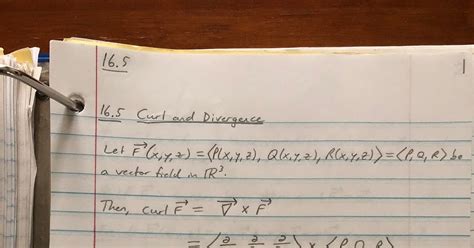 16.5
1
16.5 Curl and Divergence
Let F⃗(x,y,z) = ⟨P(x,y,z), Q(x,y,z), R(x,y,z)⟩ = ⟨P,Q,R⟩ be
a vector field in ℝ³.
Then, curl F⃗ = ∇⃗ × F⃗
= ⟨∂ ∂ ∂⟩ × ⟨P,Q,R⟩